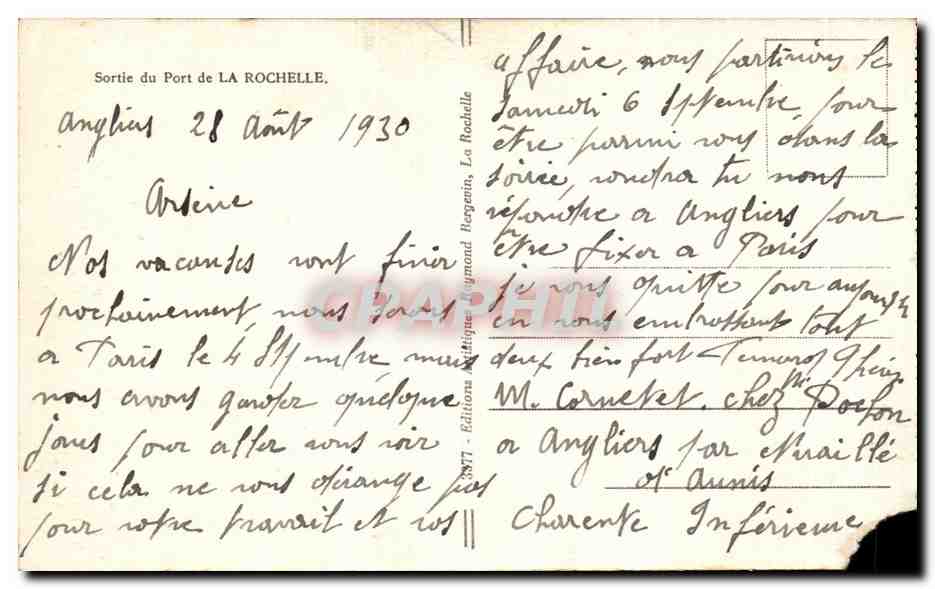 Sortie du Port de LA ROCHELLE.
Angliers 28 Août 1930
Arsène
Nos vacances vont finir
prochainement, nous serons
a Paris le 4 Septembre, mais
nous avons garder quelque
jours pour aller vous voir
si cela ne vous dérange pas
pour votre travail et vos
3977 - Editions Artistiques Raymond Bergevin, La Rochelle
affaire, nous partirions le
samedi 6 Septembre, pour
être parmi vous dans la
soirée, voudra tu nous
répondre a Angliers pour
être fixer a Paris
je vous quitte pour aujourd'h
en vous embrassant tout
deux bien fort
M. Cornetet. chez Mr Pochon
a Angliers par Nuaillé
d'Aunis
Charente Inférieure
CPAPHIL